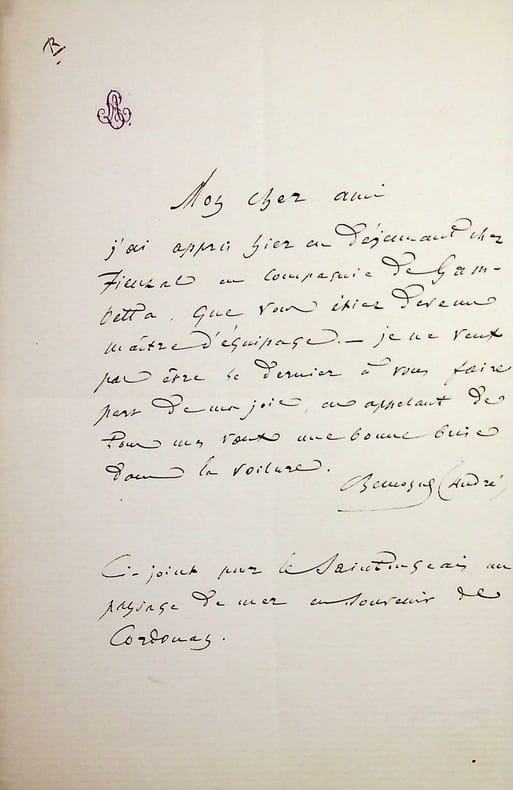 R
Mon cher ami
j'ai appris hier en déjeunant chez
Fieuzal en compagnie de Gam-
betta. que vous étiez devenu
maître d'équipage. — je ne veut
pas être le dernier à vous faire
part de ma joie, en appelant de
tous mes vœux une bonne brise
dans la voilure.
(André
Ci-joint pour le Saintongeais un
paysage de mer en souvenir de
Cordouan.